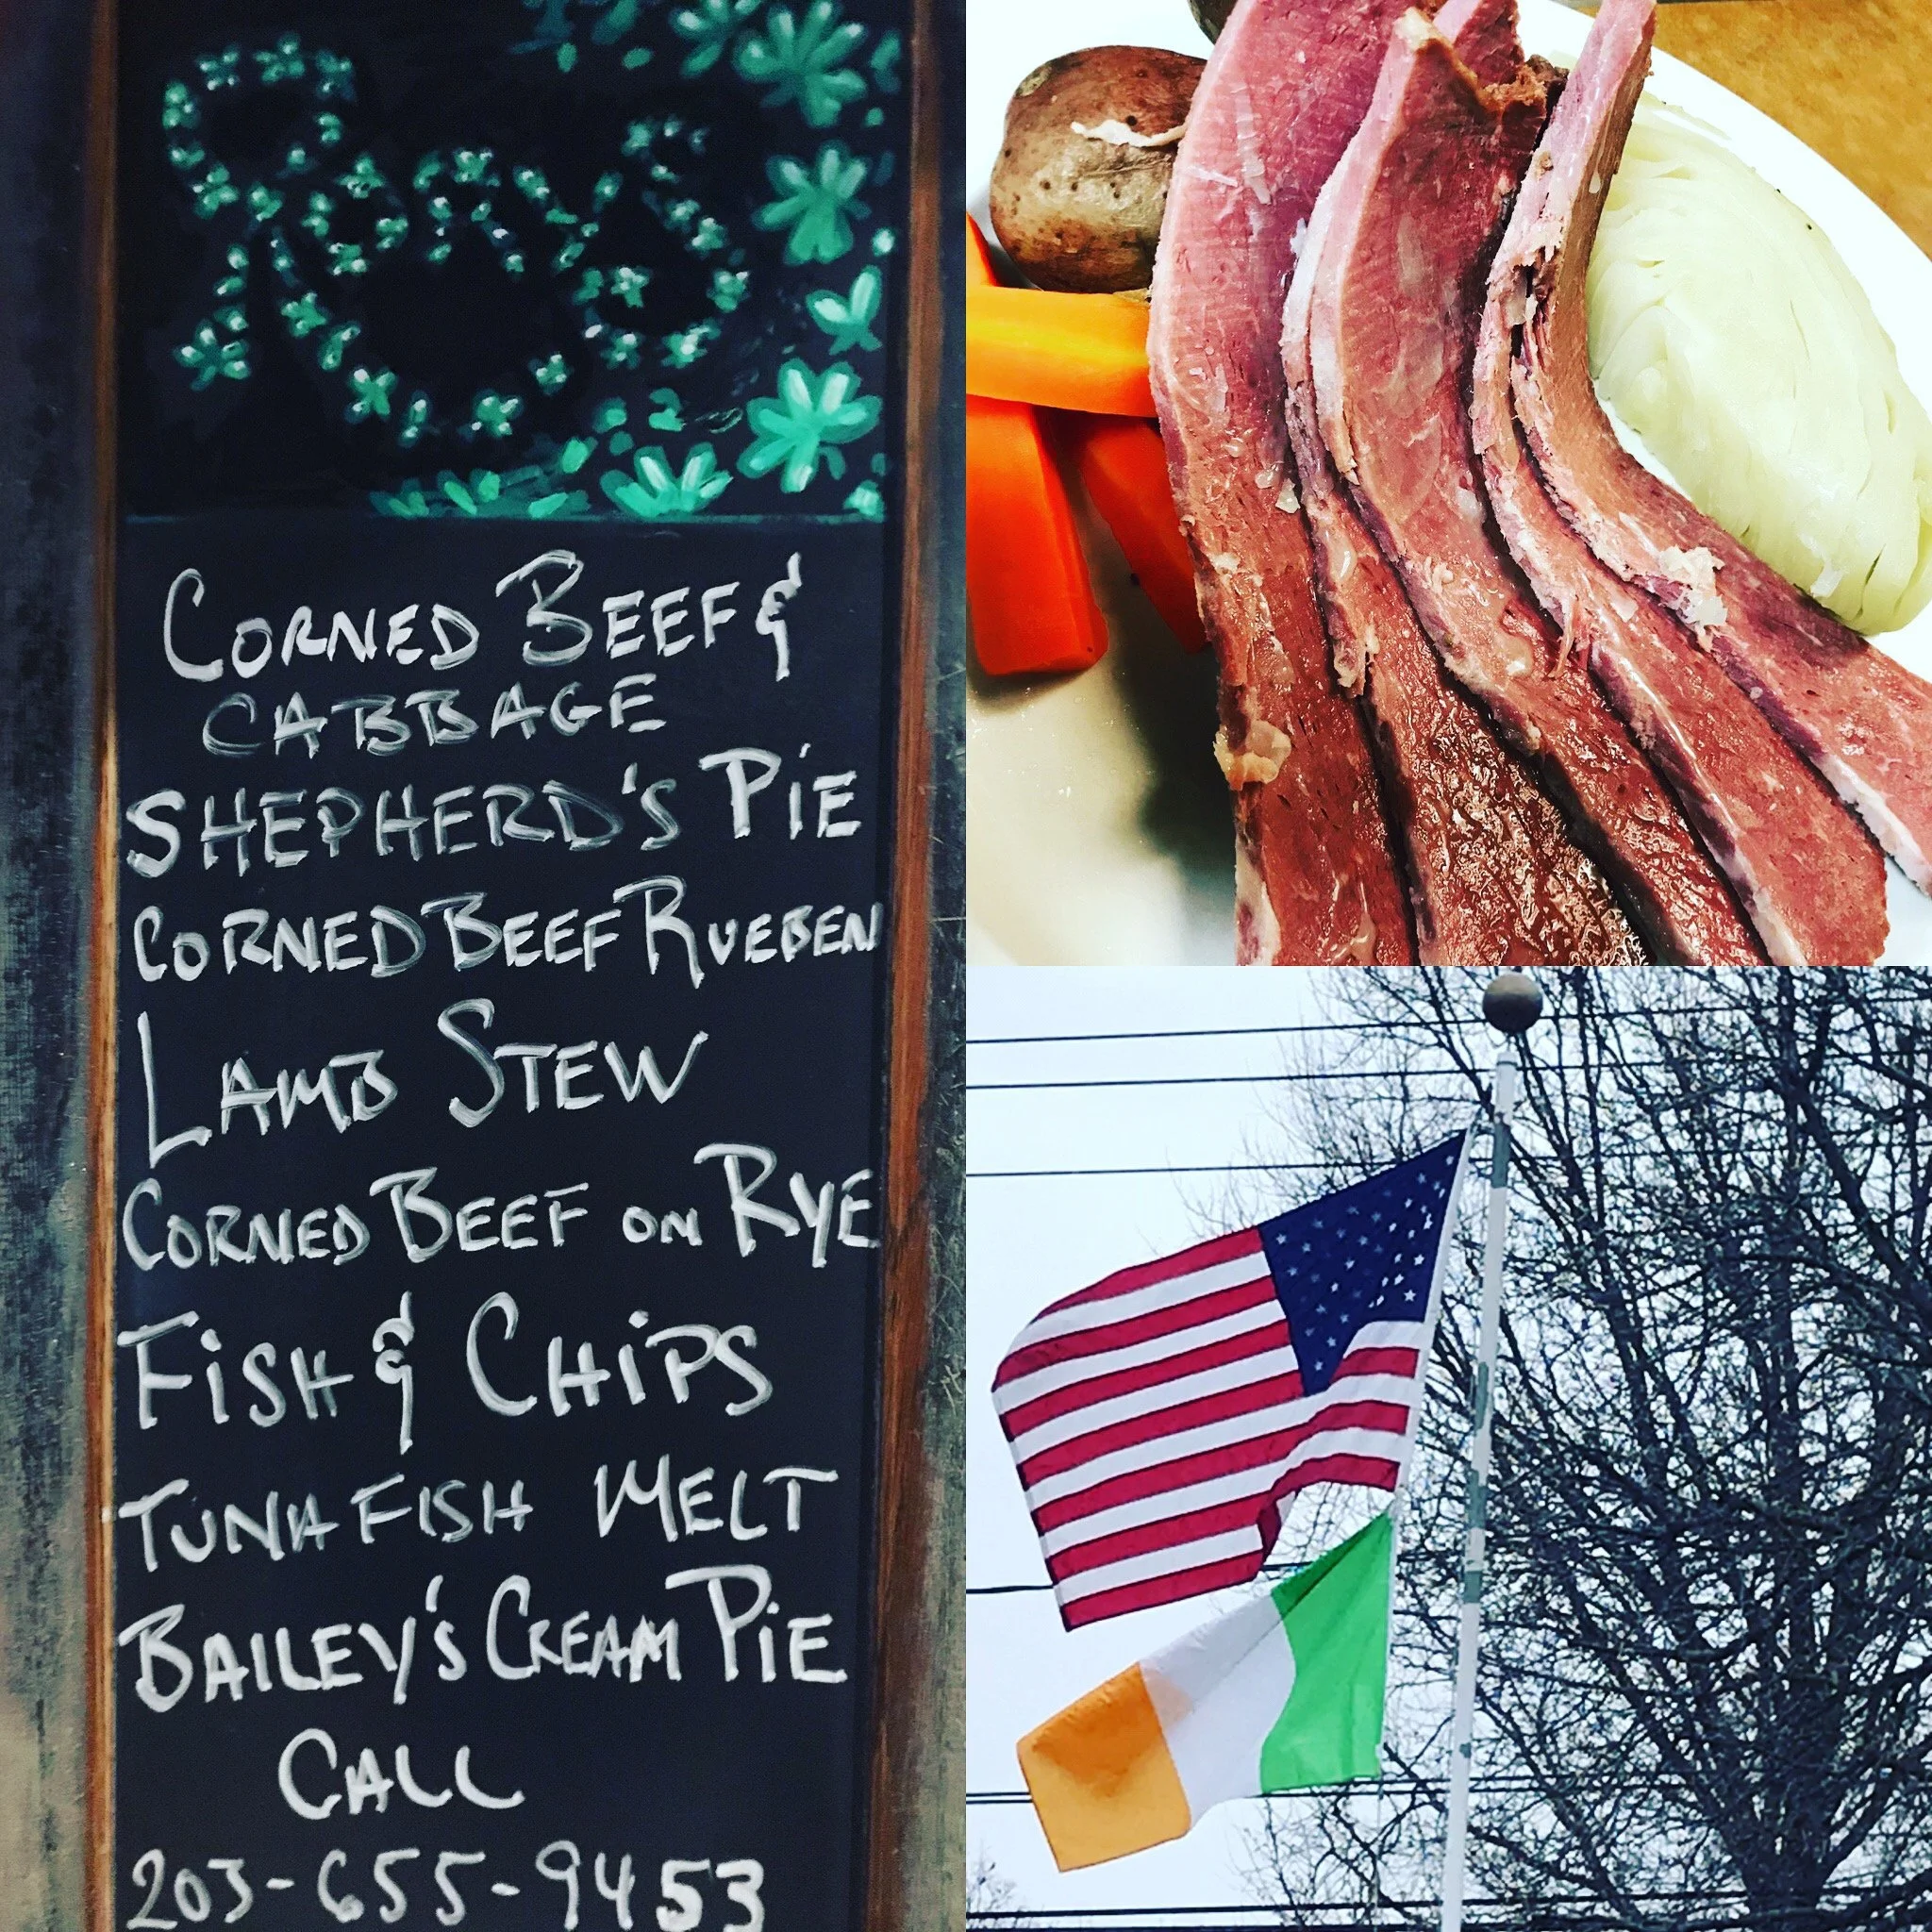 Rory's
CORNED BEEF &
CABBAGE
SHEPHERD'S PiE
CORNED BEEF RUEBEN
LAMB STEW
CORNED BEEF ON RYE
FiSH & CHiPS
TUNA FISH MELT
BAILEY'S CREAM PiE
CALL
203-655-9453